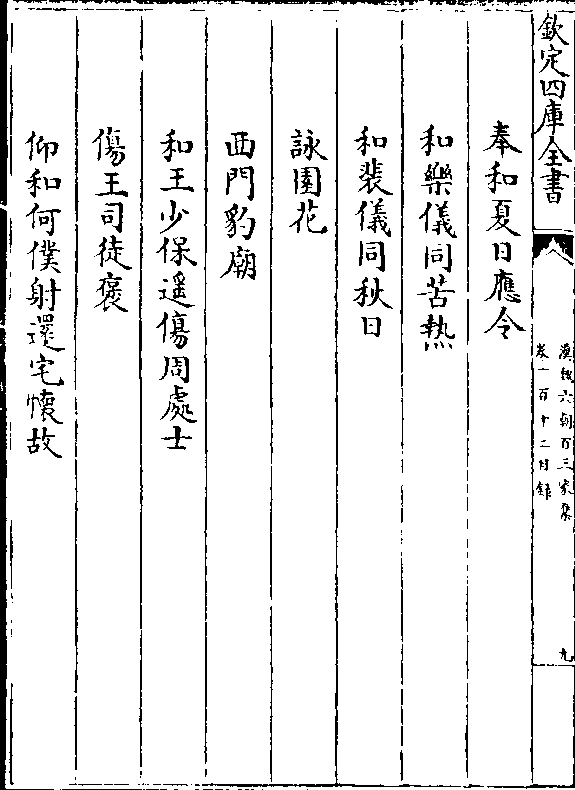 欽定四庫全書
漢魏六朝百三家集
卷一百十二目錄
九
奉和夏日應令
和樂儀同苦熱
和裴儀同秋日
詠園花
西門豹廟
和王少保遥傷周處士
傷王司徒褒
仰和何僕射還宅懷故